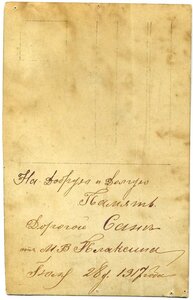 На добрую и долгую
Память
Дорогой Сани
от М В Плаксина
28 д. 1917 года